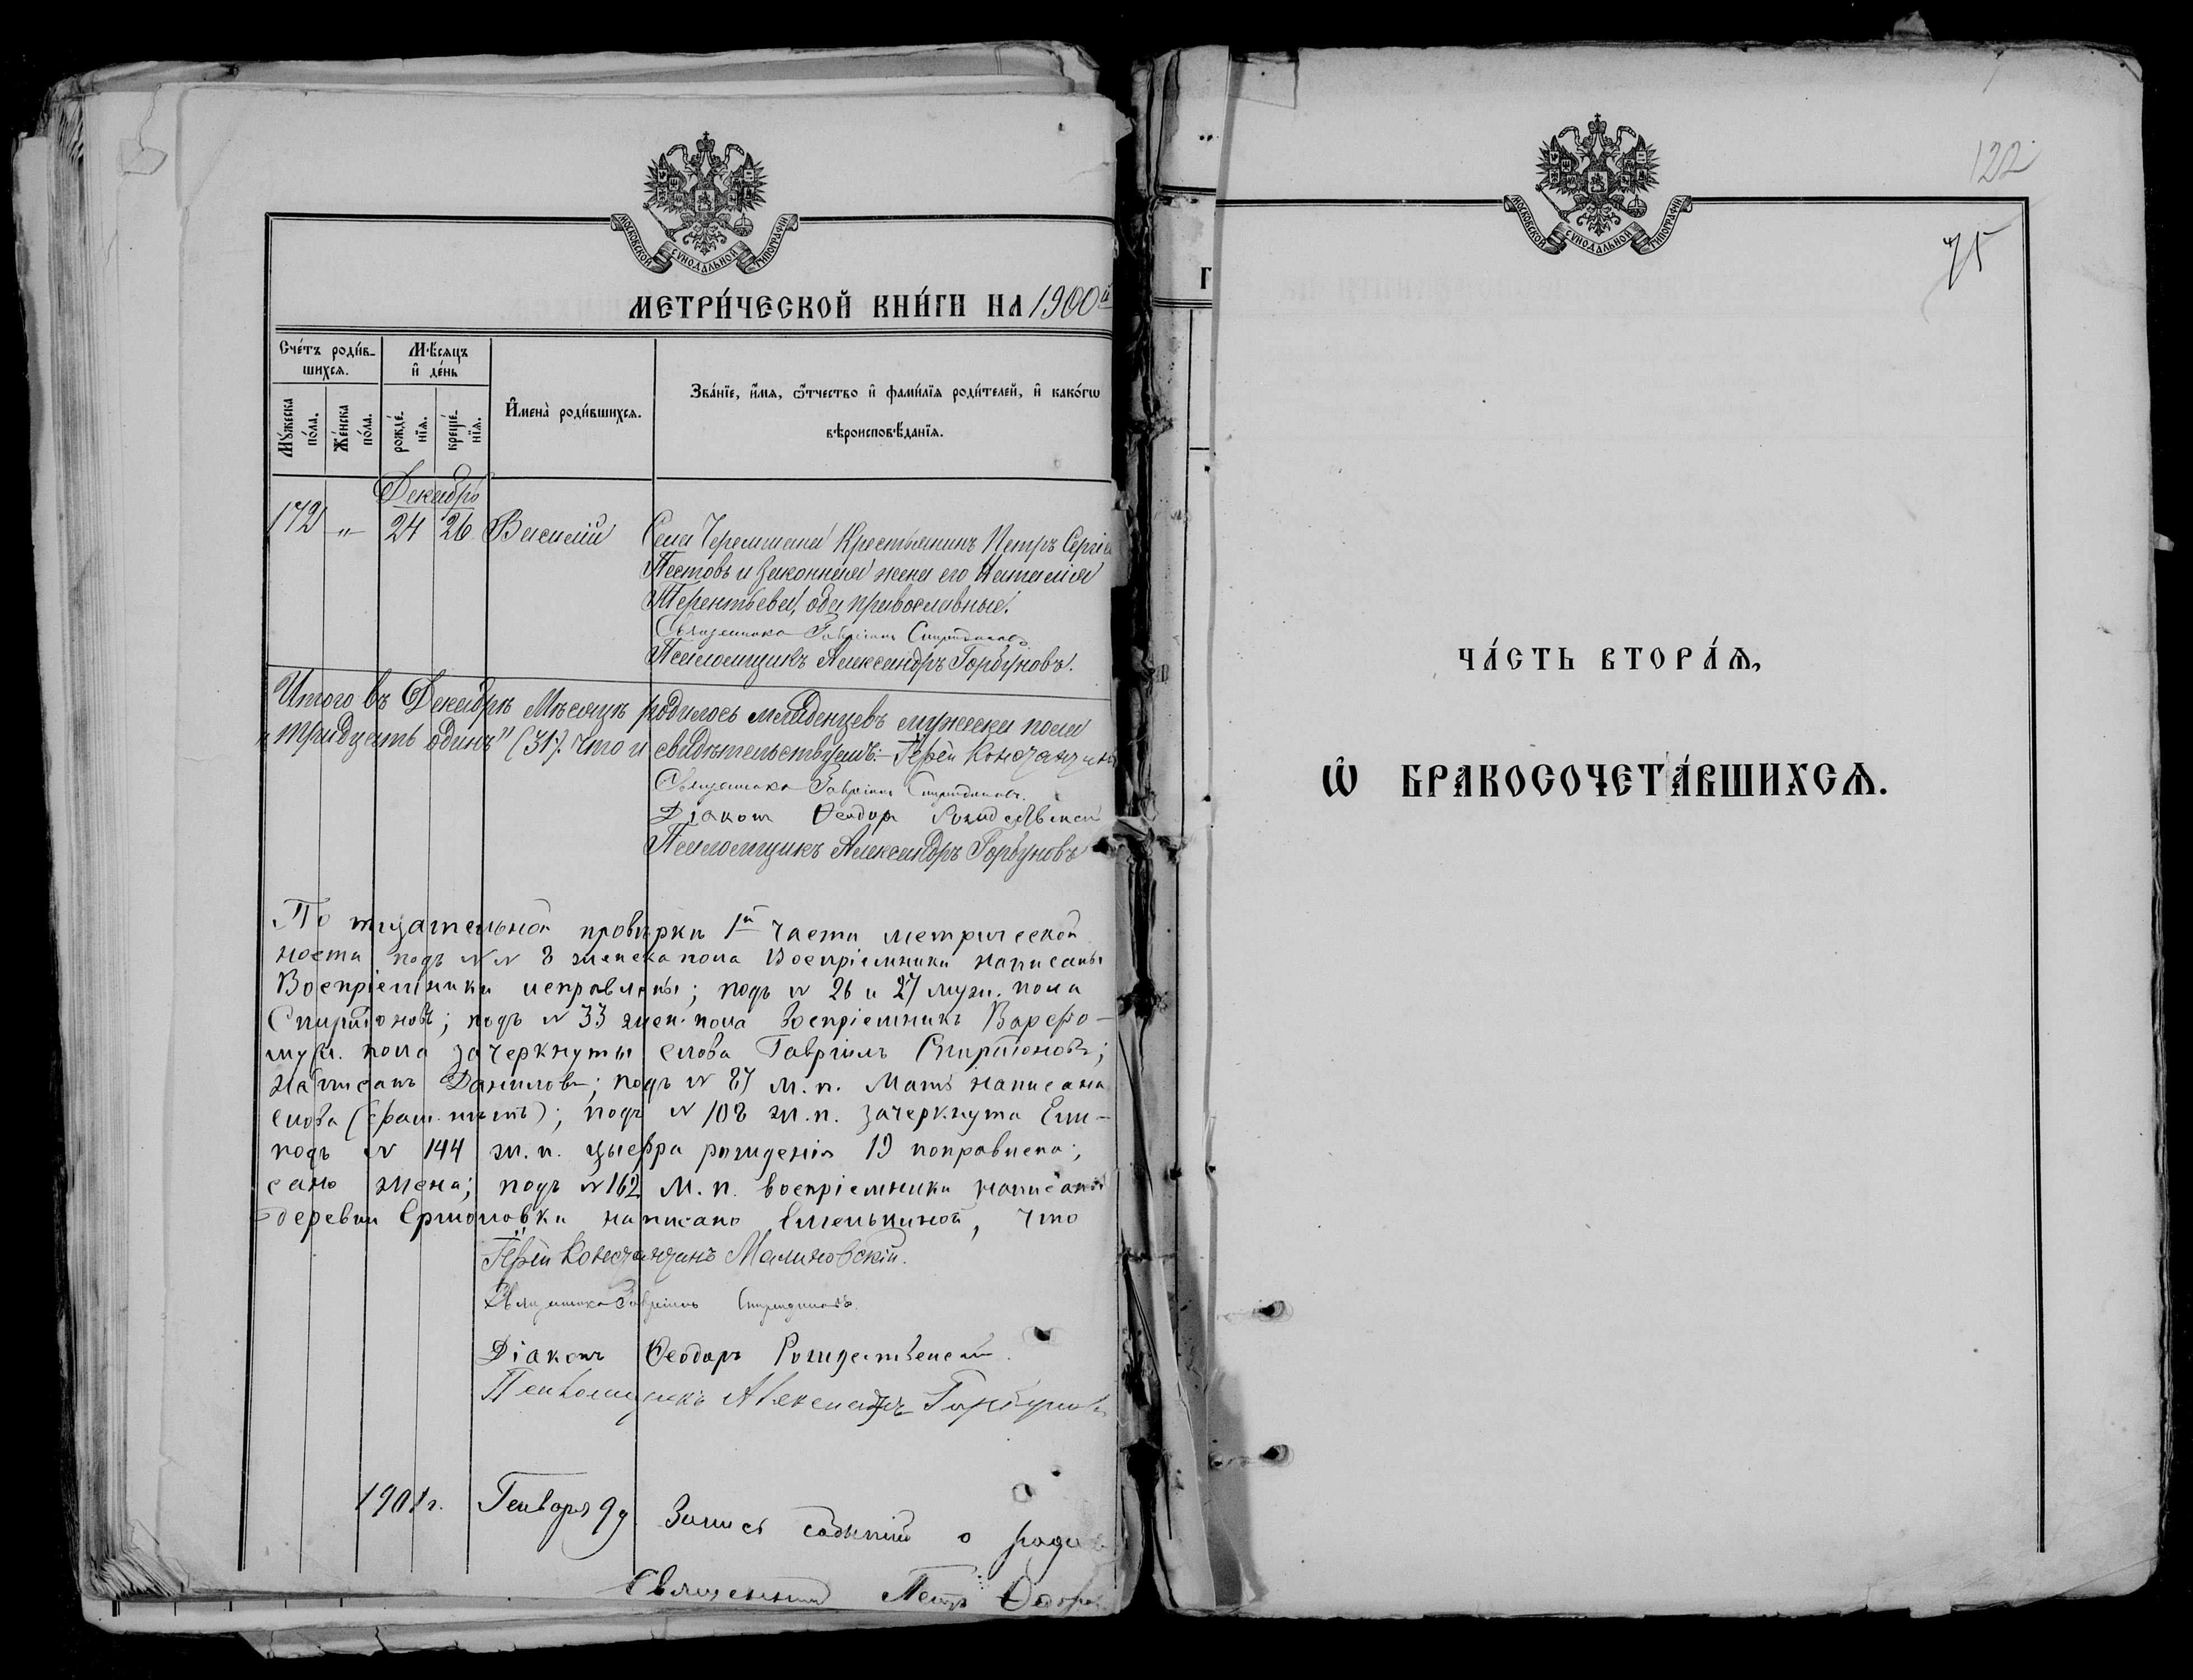 МОСКОВСКОЙ СѴНОДАЛЬНОЙ ТИПОГРАФІИ
МЕТРИ́ЧЕСКОЙ КНИ́ГИ НА 1900й
Сче́тъ роди́в-
шихся.
Мѣ́сяцъ
и҆ де́нь
Мꙋ́жеска
по́ла.
Же́нска
по́ла.
рожде́-
нїѧ.
креще́-
нїѧ.
И҆мена̀ роди́вшихсѧ.
Зва́нїе, и҆́мѧ, ѻ҆́тчество и҆ фами́лїѧ роди́телей, и҆ како́гѡ
вѣроисповѣ́данїѧ.
Декабрь
172 " 24 26 Василій
Села Черемшана Крестьянинъ Петръ Сергіе
Пестовъ и законная жена его Наталія
Терентьева, оба православные.
Священникъ Гавріилъ Спиридоновъ
Псаломщикъ Александръ Горбуновъ.
Итого въ Декабрѣ Мѣсяцѣ родилось младенцевъ мужеска пола
"тридцать одинъ" (31). Что и свидѣтельствуемъ: Іерей Константинъ
Священникъ Гавріилъ Спиридоновъ.
Діаконъ Ѳеодоръ Рождественскій
Псаломщикъ Александръ Горбуновъ
По тщательной провѣркѣ 1й части метрической
ности подъ №№ 8 женска пола Воспріемники написаны
Воспріемники исправлены; подъ № 26 и 27 муж. пола
Спиридоновъ; подъ № 33 жен. пола воспріемникъ Варѳо-
муж. пола зачеркнуты слова Гавріилъ Спиридоновъ;
написанъ Даниловъ; подъ № 87 м. п. Мать написана
слова ; подъ № 108 ж. п. зачеркнута Ели-
подъ № 144 ж. п. цыфра рожденія 19 поправлена;
сано жена; подъ № 162 м. п. воспріемники написаны
деревни Ермоловки написано Емелькиной, что
Іерей Константинъ Малиновскій.
Священникъ Гавріилъ Спиридоновъ.
Діаконъ Ѳеодоръ Рождественскій.
Псаломщикъ Александръ Горбуновъ
1901 г. Генваря 9 д. Запись событій о родив
Священникъ Петръ Ѳедоров
Г
122
75
МОСКОВСКОЙ СѴНОДАЛЬНОЙ ТИПОГРАФІИ
ЧА́СТЬ ВТОРА́Ѧ,
Ѡ҆ БРАКОСОЧЕТА́ВШИХСѦ.